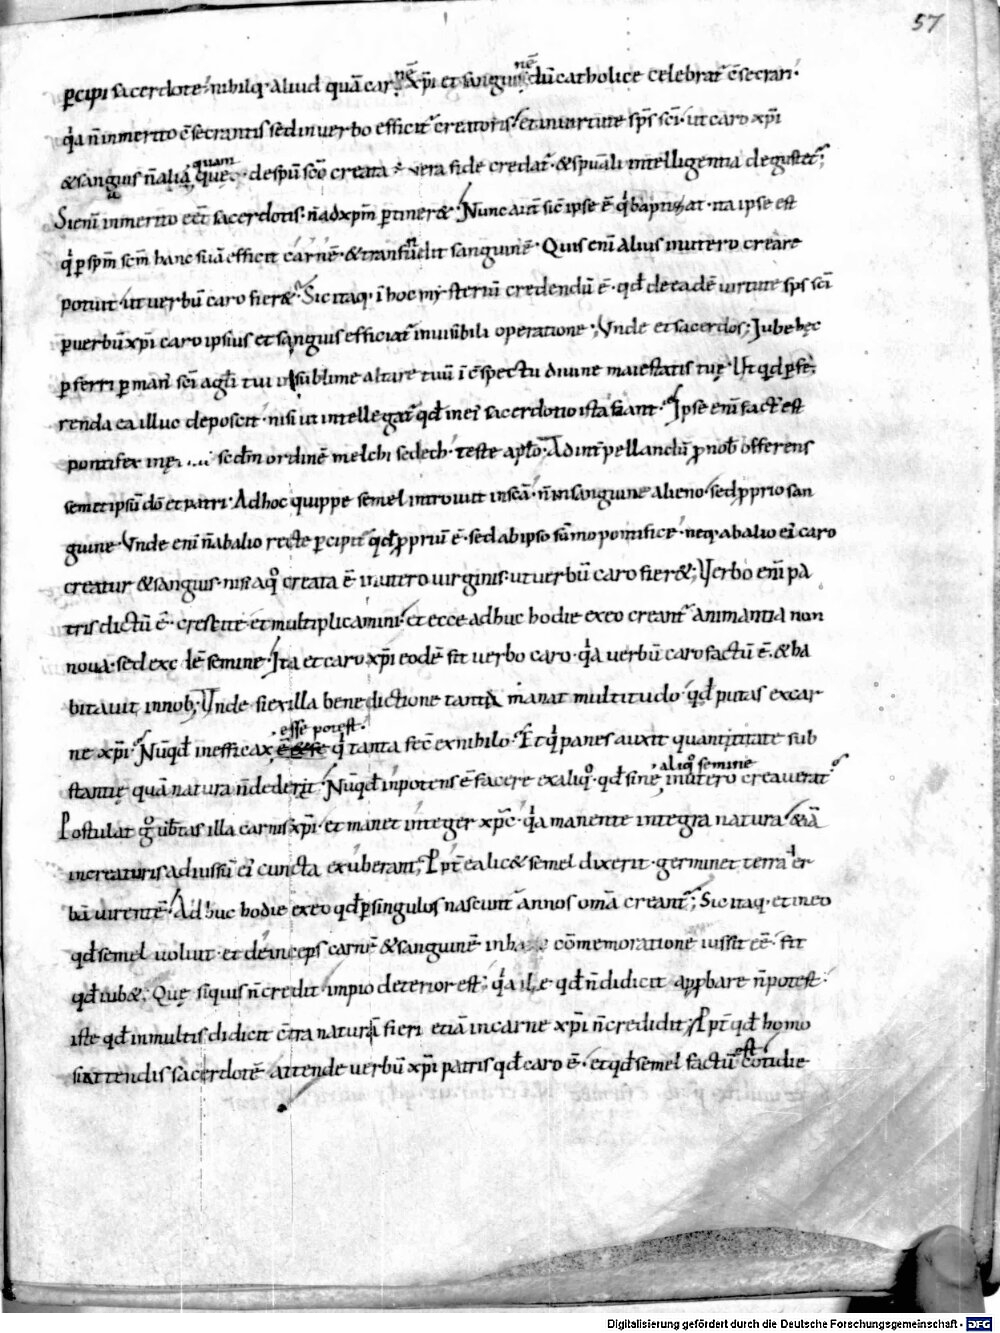 57
ꝑcipi sacerdote· nihilq; aliud quā carnē xp̄i et sanguinē dū catholice celebrat̄ c̄secrari·
q̓a n̄ inmerito c̄secrantis sed in uerbo efficit̄ creatoris· et in uirtute sp̄s sc̄i· ut caro xp̄i
&sanguis n̄ alia quam que· de spū sc̄o creata ÷ uera fide credat̄· & sp̄uali intelligentia degustet̄;
Si eni᷑ in merito eēt sacerdotis· n̄ ad xp̄m ꝑtiner&· Nunc aut̄ sic̄ ipse ē q̓ baptizat· ita ipse est
q̓ ꝑ sp̄m sc̄m hanc suā efficit carnē· & transfundit sanguinē· Quis eni᷑ alius in utero creare
potuit· ut uerbū caro fier&· Sic itaq; ī hoc mysteriū credendū ē· qd̄ de eadē uirtute sp̄s sc̄i
ꝑ uerbū xp̄i caro ipsius et sanguis efficiat̄ inuisibili operatione; Vnde et sacerdos; Iube hęc
ꝑferri ꝑ man᷑ sc̄i agl̄i tui in sublime altare tuū ī c̄spectu diuine maiestatis tuę· Ut qd ꝑfe
renda ea illuc deposcit· nisi ut intellegat̄ qd̄ in ei᷑ sacerdotio ista fiant· Ipse eni᷑ fact᷑ est
pontifex in sc̄dm ordinē melchisedech· teste aplo· Ad int̄pellandū ꝓ nob̄ offerens
semetipsū dō et patri· Ad hoc quippe semel introiuit in sc̄a· n̄ in sanguine alieno· sed ꝓprio san
guine· Vnde eni᷑ n̄ ab alio recte ꝑcipit᷑ qd̄ ꝓpriū ē· sed ab ipso sūmo pontifice· neq; ab alio ei᷑ caro
creatur & sanguis· nisi a q̊ creata ē in utero uirginis· ut uerbū caro fier&; Verbo eni᷑ pa
tris dictū ē· crescite et multiplicamini· et ecce adhuc hodie ex eo creant̄ animantia non
noua· sed ex eodē semine· Ita et caro xp̄i eodē fit uerbo caro· q̓a uerbū caro factū ē· & ha
bitauit in nob; Vnde si ex illa benedictione tanta manat multitudo· qd̄ putas ex car
ne xp̄i· Nūqd̄ inefficax esse potest· q̓ tanta fec̄ ex nihilo· Et q̓ panes auxit quantitate sub
stantię quā natura n̄ dederit· Nūqd̄ inpotens ē facere ex aliq̊· qd̄ sine aliq̊ semine in utero creauerat
Postulat g̊ ub̄tas illa carnis xp̄i· et manet integer xp̄c· q̓a manente integra natura· &iā
in creaturis ad iussū ei᷑ cuncta exuberant; Ppt̄ ea lic& semel dixerit· germinet terra her
bā uirentē· Adhuc hodie ex eo qd̄ ꝑ singulos nascunt̄ annos om̄a creant̄; Sic itaq; et in eo
qd̄ semel uoluit· et deinceps carnē & sanguinē in hac cōmemoratione iussit eē· fit
qd̄ iub&; Quę siquis n̄ credit impio deterior est; q̓a ille qd̄ n̄ didicit apꝓbare n̄ potest·
iste qd̄ in multis didicit c̄tra naturā fieri etiā in carne xp̄i n̄ credidit; Ppt̄ qd̄ homo
si attendis sacerdotē· attende uerbū xp̄i patris qd̄ caro ē· et qd̄ semel factū est cotidie
Digitalisierung gefördert durch die Deutsche Forschungsgemeinschaft - DFG